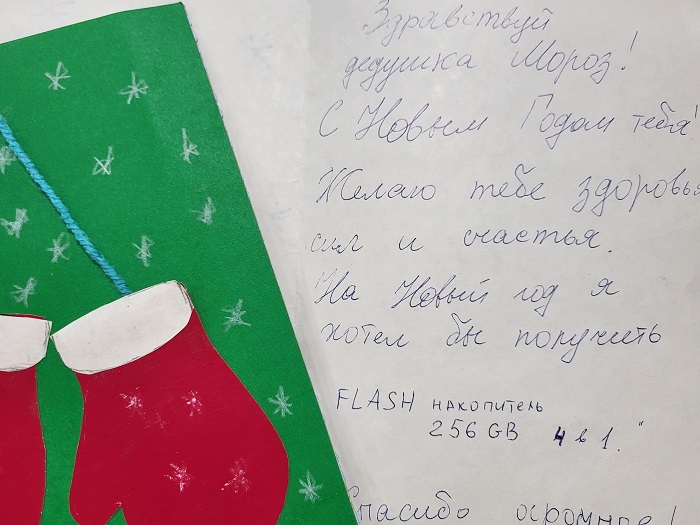 Здравствуй
дедушка Мороз!
С Новым Годом тебя!
Желаю тебе здоровья
сил и счастья.
На Новый год я
хотел бы получить
FLASH накопитель
256 GB 4 в 1."
Спасибо огромное!